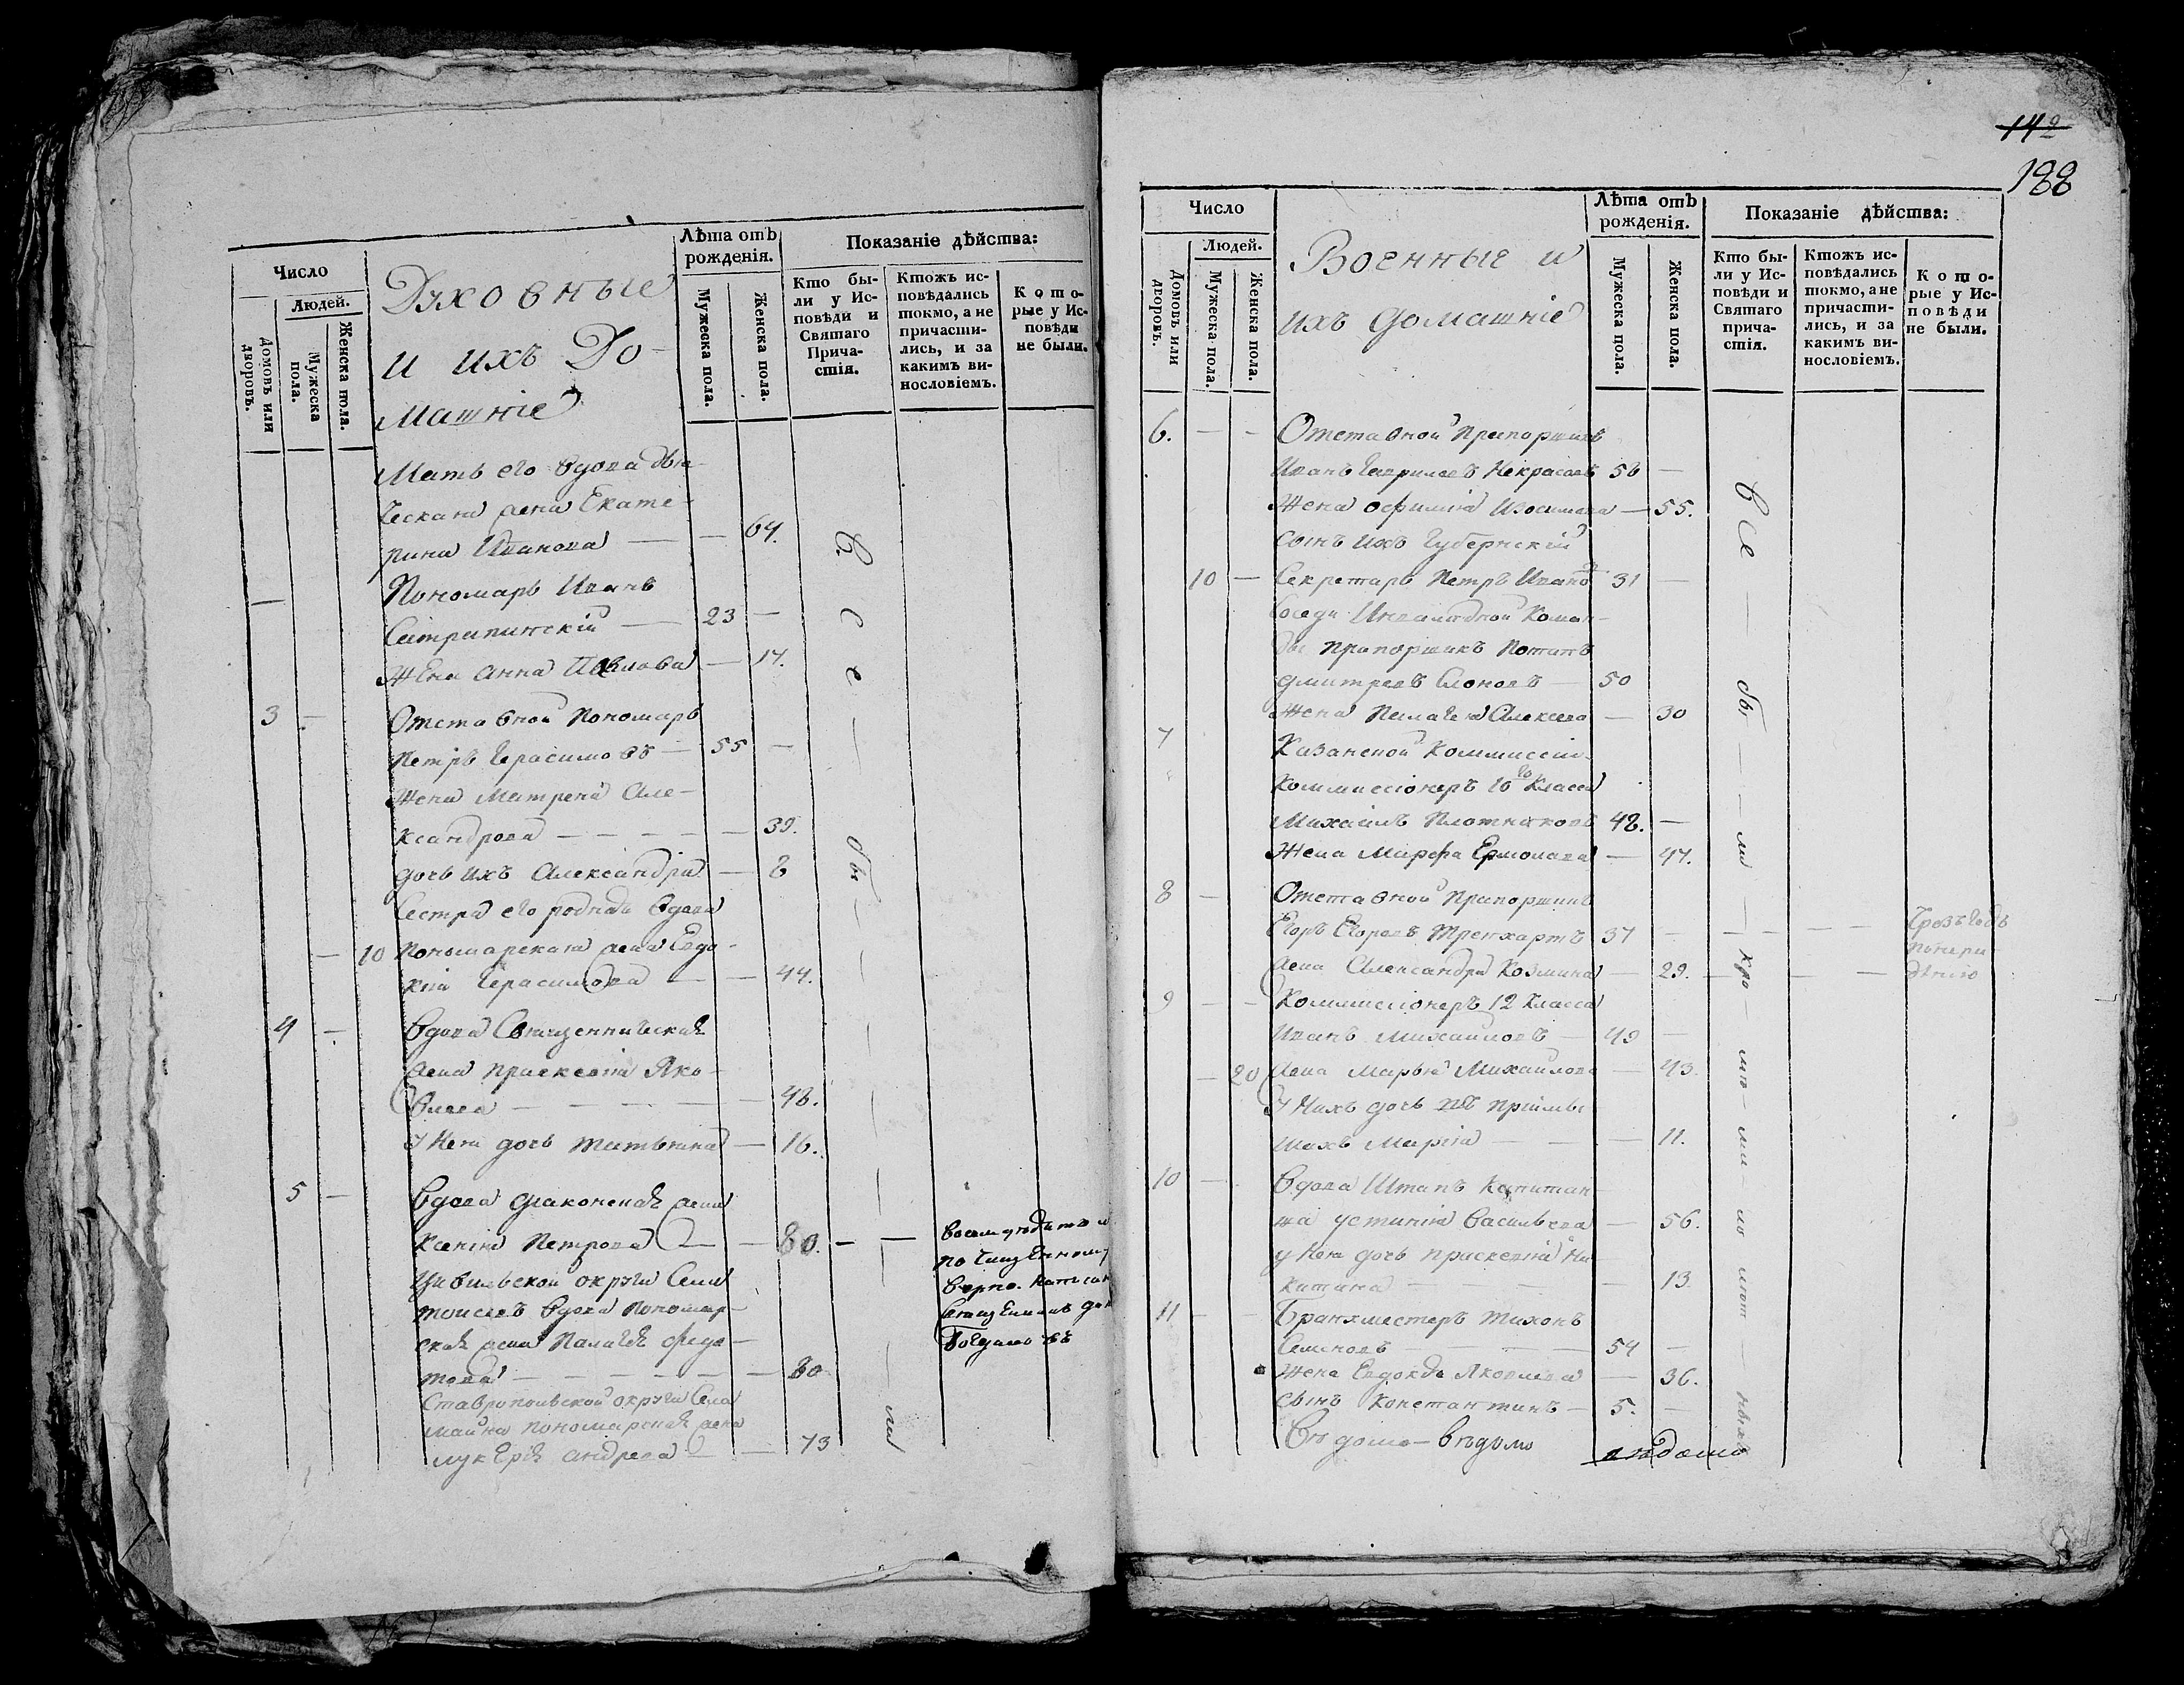 Число
Людей.
Домовъ или дворовъ.
Мужеска пола.
Женска пола.
Духовные
и ихъ До-
машніе
Лѣта отъ рожденія.
Мужеска пола.
Женска пола.
Показаніе дѣйства:
Кто бы-
ли у Ис-
повѣди и
Святаго
Прича-
стія.
Ктожъ ис-
повѣдались
токмо, а не
причасти-
лись, и за
какимъ ви-
нословіемъ.
Кото-
рые у Ис-
повѣди
не были.
Мать его вдова дья-
ческая жена Екате-
рина Иванова — — 64.
Пономарь Иванъ
— 23 —
Жена Анна Павлова — 17.
3 — Отставной Пономарь
Петръ Герасимовъ — 55 —
Жена Матрена Але-
ксандрова — — — — 39.
дочь ихъ Александра — 8
Сестра его родная вдова
— 10 Пономарская жена Евдо-
кія Герасимова — — 44.
4 — Вдова Священническая
жена Праскевія Яко-
влева — — — — 48.
У Нея дочь Татьяна — 16.
5 — Вдова діаконская жена
Ксенія Петрова — — 80. — —
Цывильской округи Села
вдова Пономар-
ская жена Палагея Федо-
това — — — — — 80
Ставропольской округи Села
Майна пономарская жена
лукерія андреева — — 73
все — бы — ли
Священникъ
142
188
Число
Людей.
Домовъ или дворовъ.
Мужеска пола.
Женска пола.
Военные и
ихъ домашніе
Лѣта отъ рожденія.
Мужеска пола.
Женска пола.
Показаніе дѣйства:
Кто бы-
ли у Ис-
повѣди и
Святаго
прича-
стія.
Ктожъ ис-
повѣдались
токмо, а не
причасти-
лись, и за
какимъ ви-
нословіемъ.
Кото-
рые у Ис-
повѣди
не были.
6. — - Отставной Прапорщикъ
Иванъ Гавриловъ Некрасовъ 56 —
Жена Офимія Изосимова — 55.
Сынъ ихъ Губернскій
10 — Секретарь Петръ Ивановъ 31 —
Соседи Инвалидной Коман-
ды прапорщикъ Потапъ
Дмитревъ Слоновъ — 50
Жена Пелагея Алексева — 30
7 Казанской Коммиссіи
Коммиссіонеръ 10го Класса
Михаилъ Плотниковъ 48. —
Жена Марфа Ермолаева — 47.
8 — Отставной Прапорщикъ
Егоръ Егоровъ 37 — — — —
жена Александра Козмина — 29. — — —
9 — - Коммисіонеръ 12 Класса
Иванъ Михайловъ — 49 —
— 20 жена Марья Михайлова — 43.
У Нихъ дочь
Марія — — — 11.
10 — Вдова Штапъ Капитан-
ша Устинія Васильева — 56.
у Нея дочь Праскевія Ни-
китина — — — — 13.
11 — Бранхместеръ Тихонъ
Семеновъ — — — 54 —
Жена Евдокея Яковлева — 36.
сынъ Константинъ — 5. —
все — бы — ли — кро —